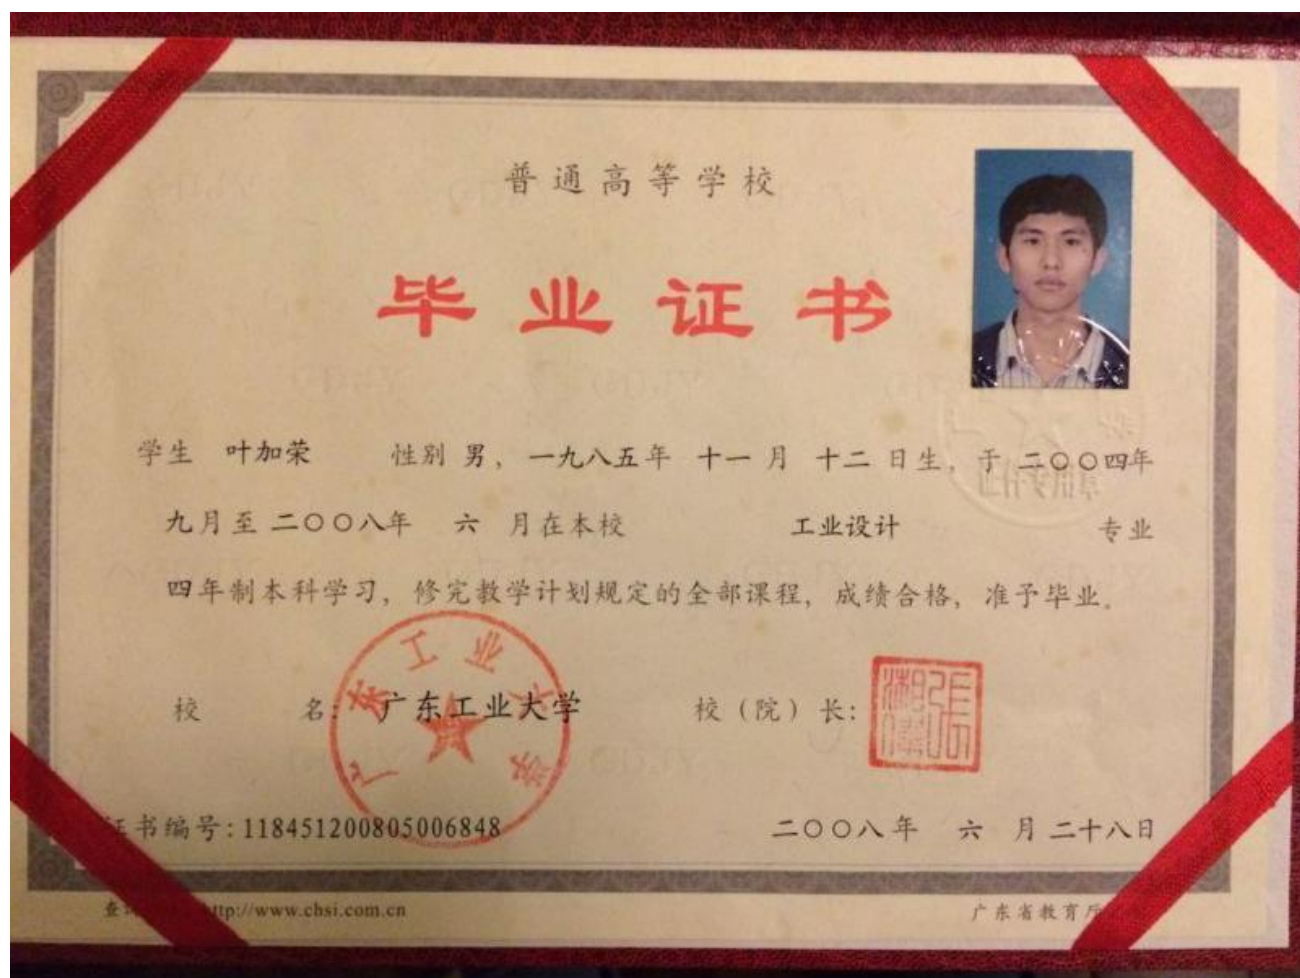 普通高等学校
毕业证书
学生 叶加荣 性别 男，一九八五年 十一 月 十二 日生，于 二〇〇四年
九月至 二〇〇八年 六 月在本校 工业设计 专业
四年制本科学习，修完教学计划规定的全部课程，成绩合格，准予毕业。
校 名：广东工业大学 校（院）长：
广东工业大学
证书编号：118451200805006848 二〇〇八年 六 月 二十八日
http://www.chsi.com.cn 广东省教育厅